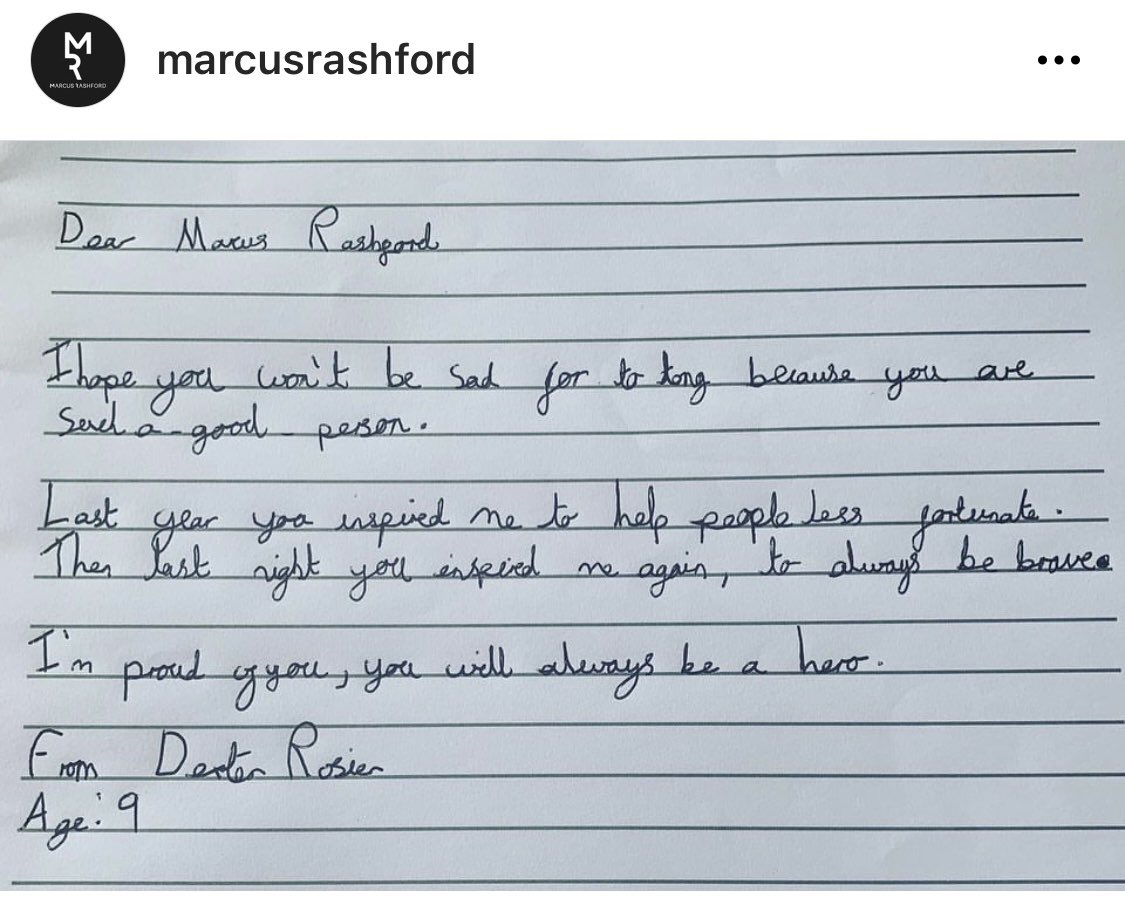 MR
MARCUS RASHFORD
marcusrashford
Dear Marcus Rashford
I hope you won't be sad for to long because you are
such a good person.
Last year you inspired me to help people less fortunate.
Then last night you inspired me again, to always be brave.
I'm proud of you, you will always be a hero.
From Dexter Rosier
Age: 9